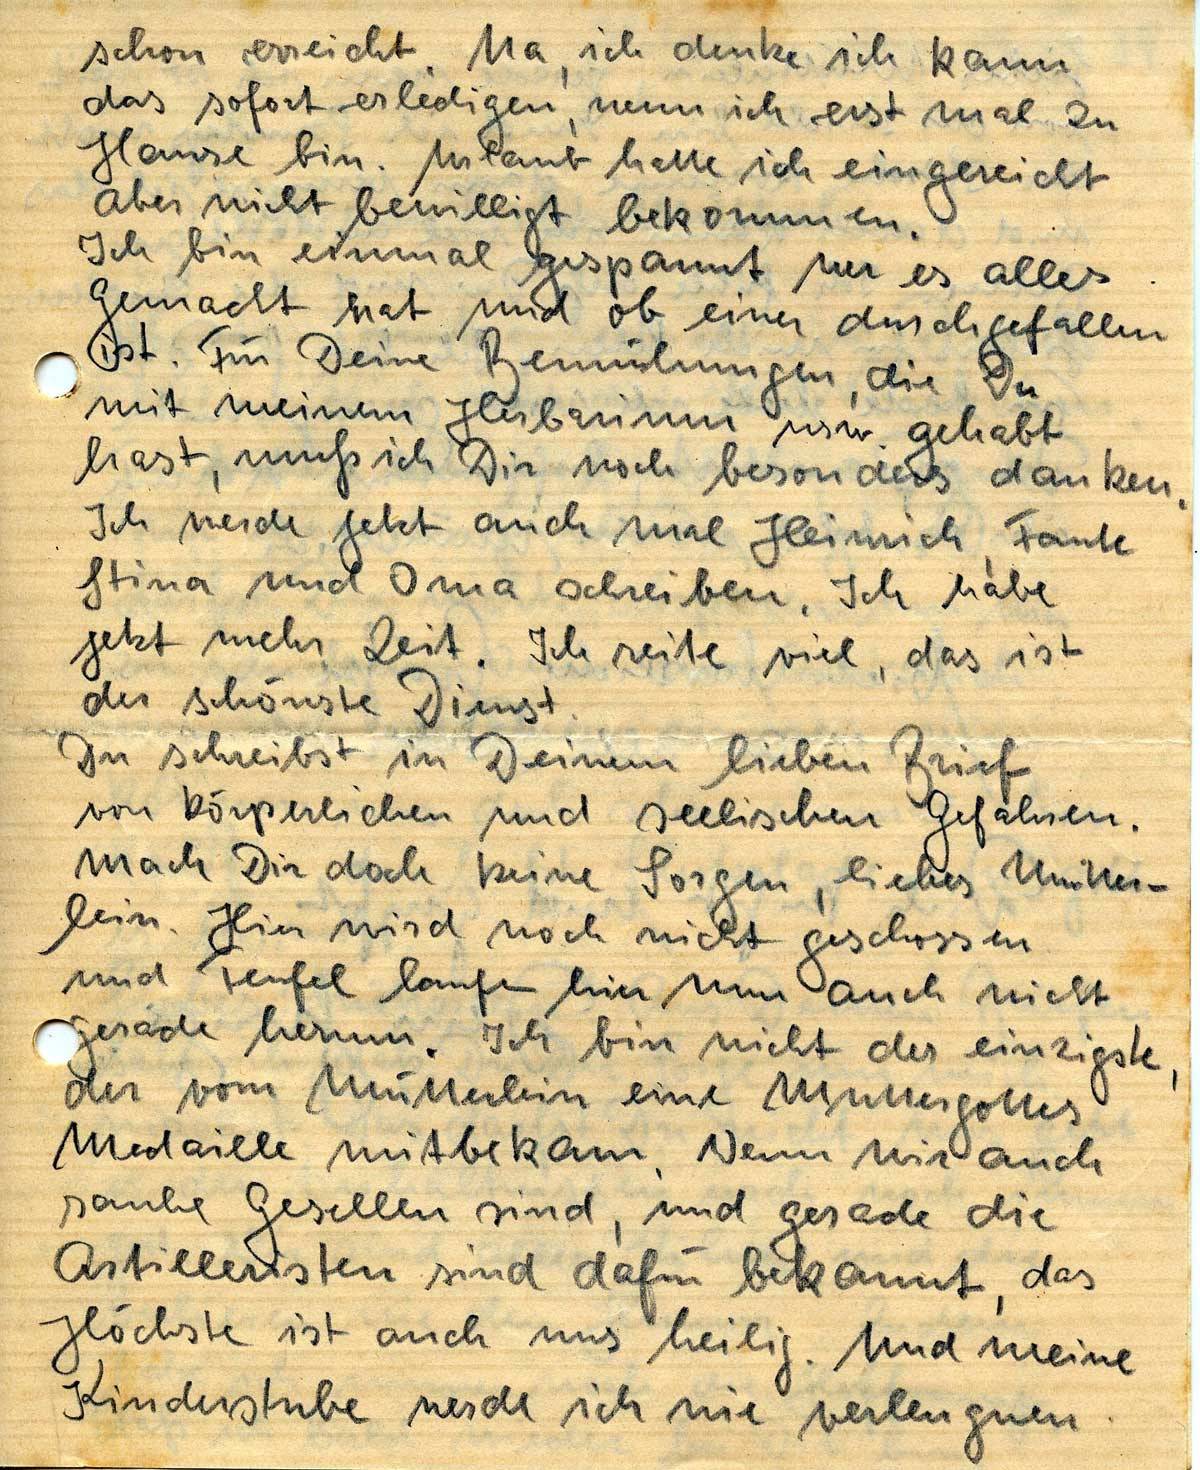 schon erreicht. Na, ich denke ich kann
das sofort erledigen, wenn ich erst mal zu
Hause bin. Urlaub hatte ich eingereicht
aber nicht bewilligt bekommen.
Ich bin einmal gespannt wer es alles
gemacht hat und ob einer durchgefallen
ist. Für Deine Bemühungen, die Du
mit meinem Herbarium usw. gehabt
hast, muß ich Dir noch besonders danken.
Ich werde jetzt auch mal Heinrich, Tante
Stina und Oma schreiben. Ich habe
jetzt mehr Zeit. Ich reite viel, das ist
der schönste Dienst.
Du schreibst in Deinem lieben Brief
von körperlichen und seelischen Gefahren.
Mach Dir doch keine Sorgen, liebes Mütter-
lein. Hier wird noch nicht geschossen
und Teufel laufen hier nun auch nicht
gerade herum. Ich bin nicht der einzigste,
der vom Mütterlein eine Muttergottes
Medaille mitbekam. Wenn wir auch
rauhe Gesellen sind, und gerade die
Artilleristen sind dafür bekannt, das
Höchste ist auch uns heilig. Und meine
Kinderstube werde ich nie verleugnen.